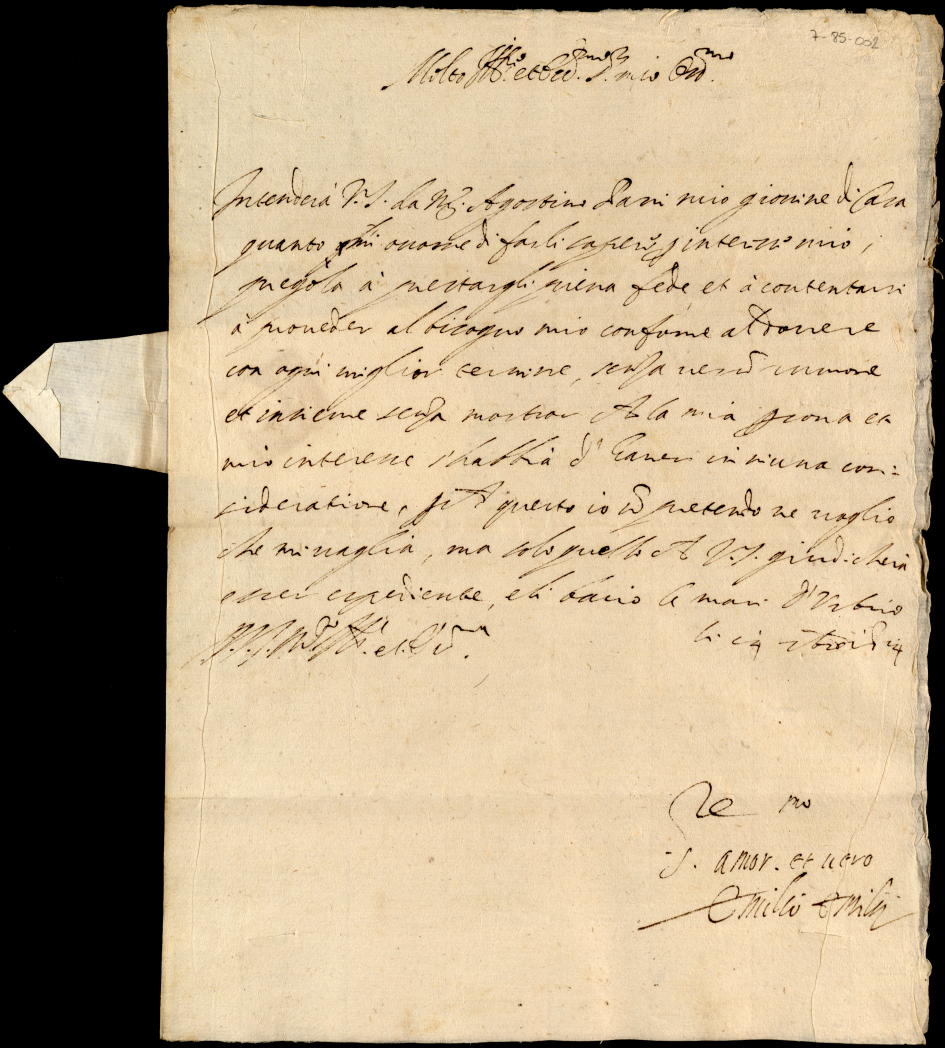 7-85-002
Molto Ill.re et Ecc.mo S.r mio oss.mo
Intenderà V.S. da M. Agostino mio giovine di Casa
quanto di farli saper p interesse mio,
pregola à prestargli piena fede, et à contentarsi
à proveder al bisogno mio conforme al dovere
con ogni miglior termine, senza rumore
et insieme senza mostrar ch la mia psona et
mio interesse s'habbia d' haver in niuna con=
sideratione, p ch questo io nõ pretendo ne voglio
che mi vaglia, ma solo quello ch V.S. giudicherà
esser espediente, e li bacio le mani d'Urbino
D. V. S. M.to Ill.re et
li 14
S. amor. et vero
Emilio Emilij